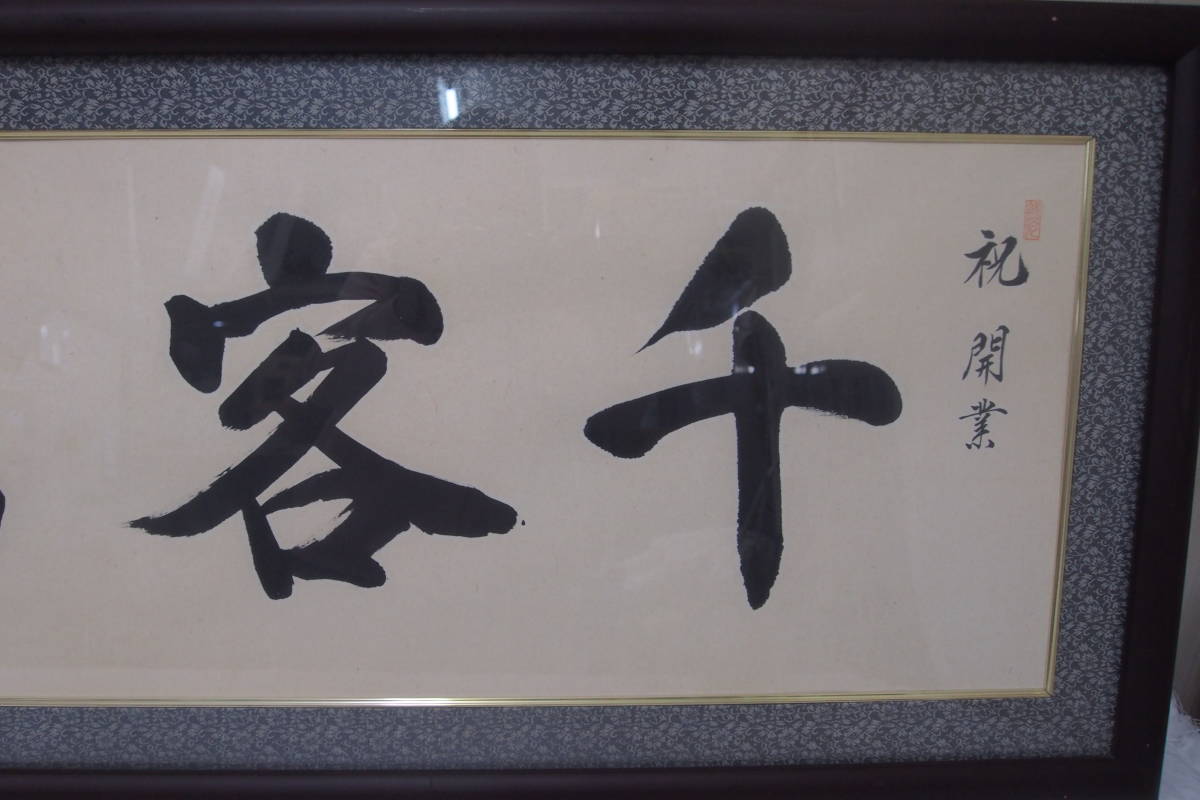 祝 開業
千客